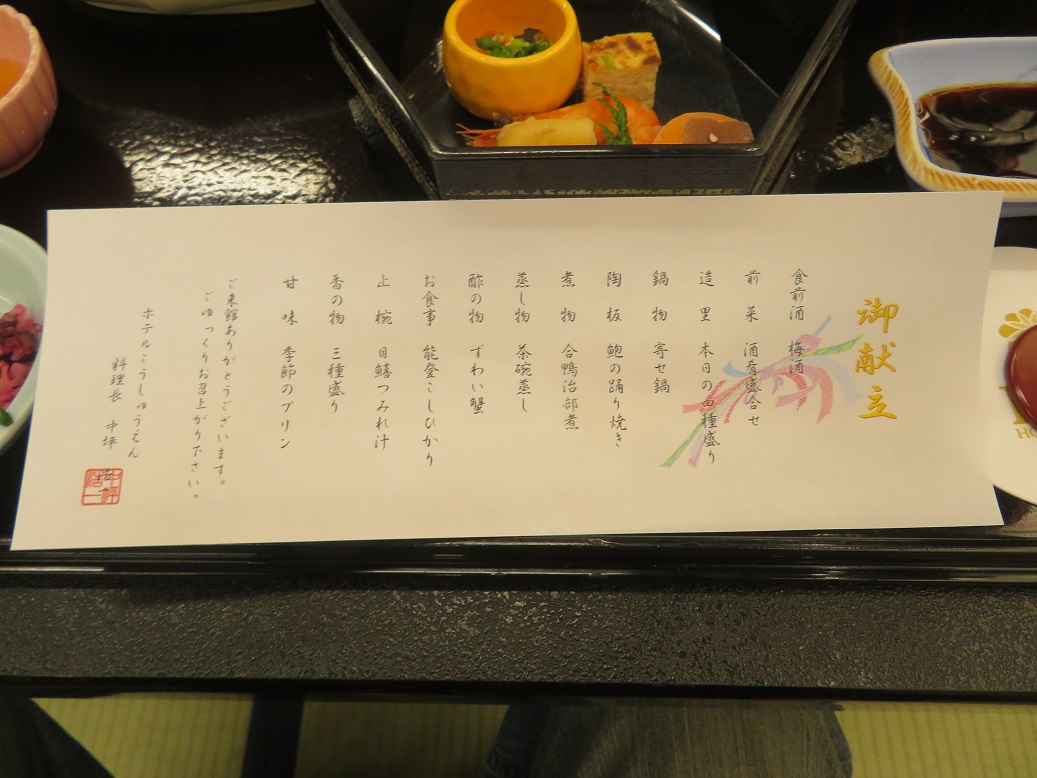 御献立
食前酒 梅酒
前菜 酒肴盛合せ
造里 本日の四種盛り
鍋物 寄せ鍋
陶板 鮑の踊り焼き
煮物 合鴨治部煮
蒸し物 茶碗蒸し
酢の物 ずわい蟹
お食事 能登こしひかり
止椀 目鱚つみれ汁
香の物 三種盛り
甘味 季節のプリン
ご来館ありがとうございます。
ごゆっくりお召上がり下さい。
ホテルこうしゅうえん
料理長 中坪
HO